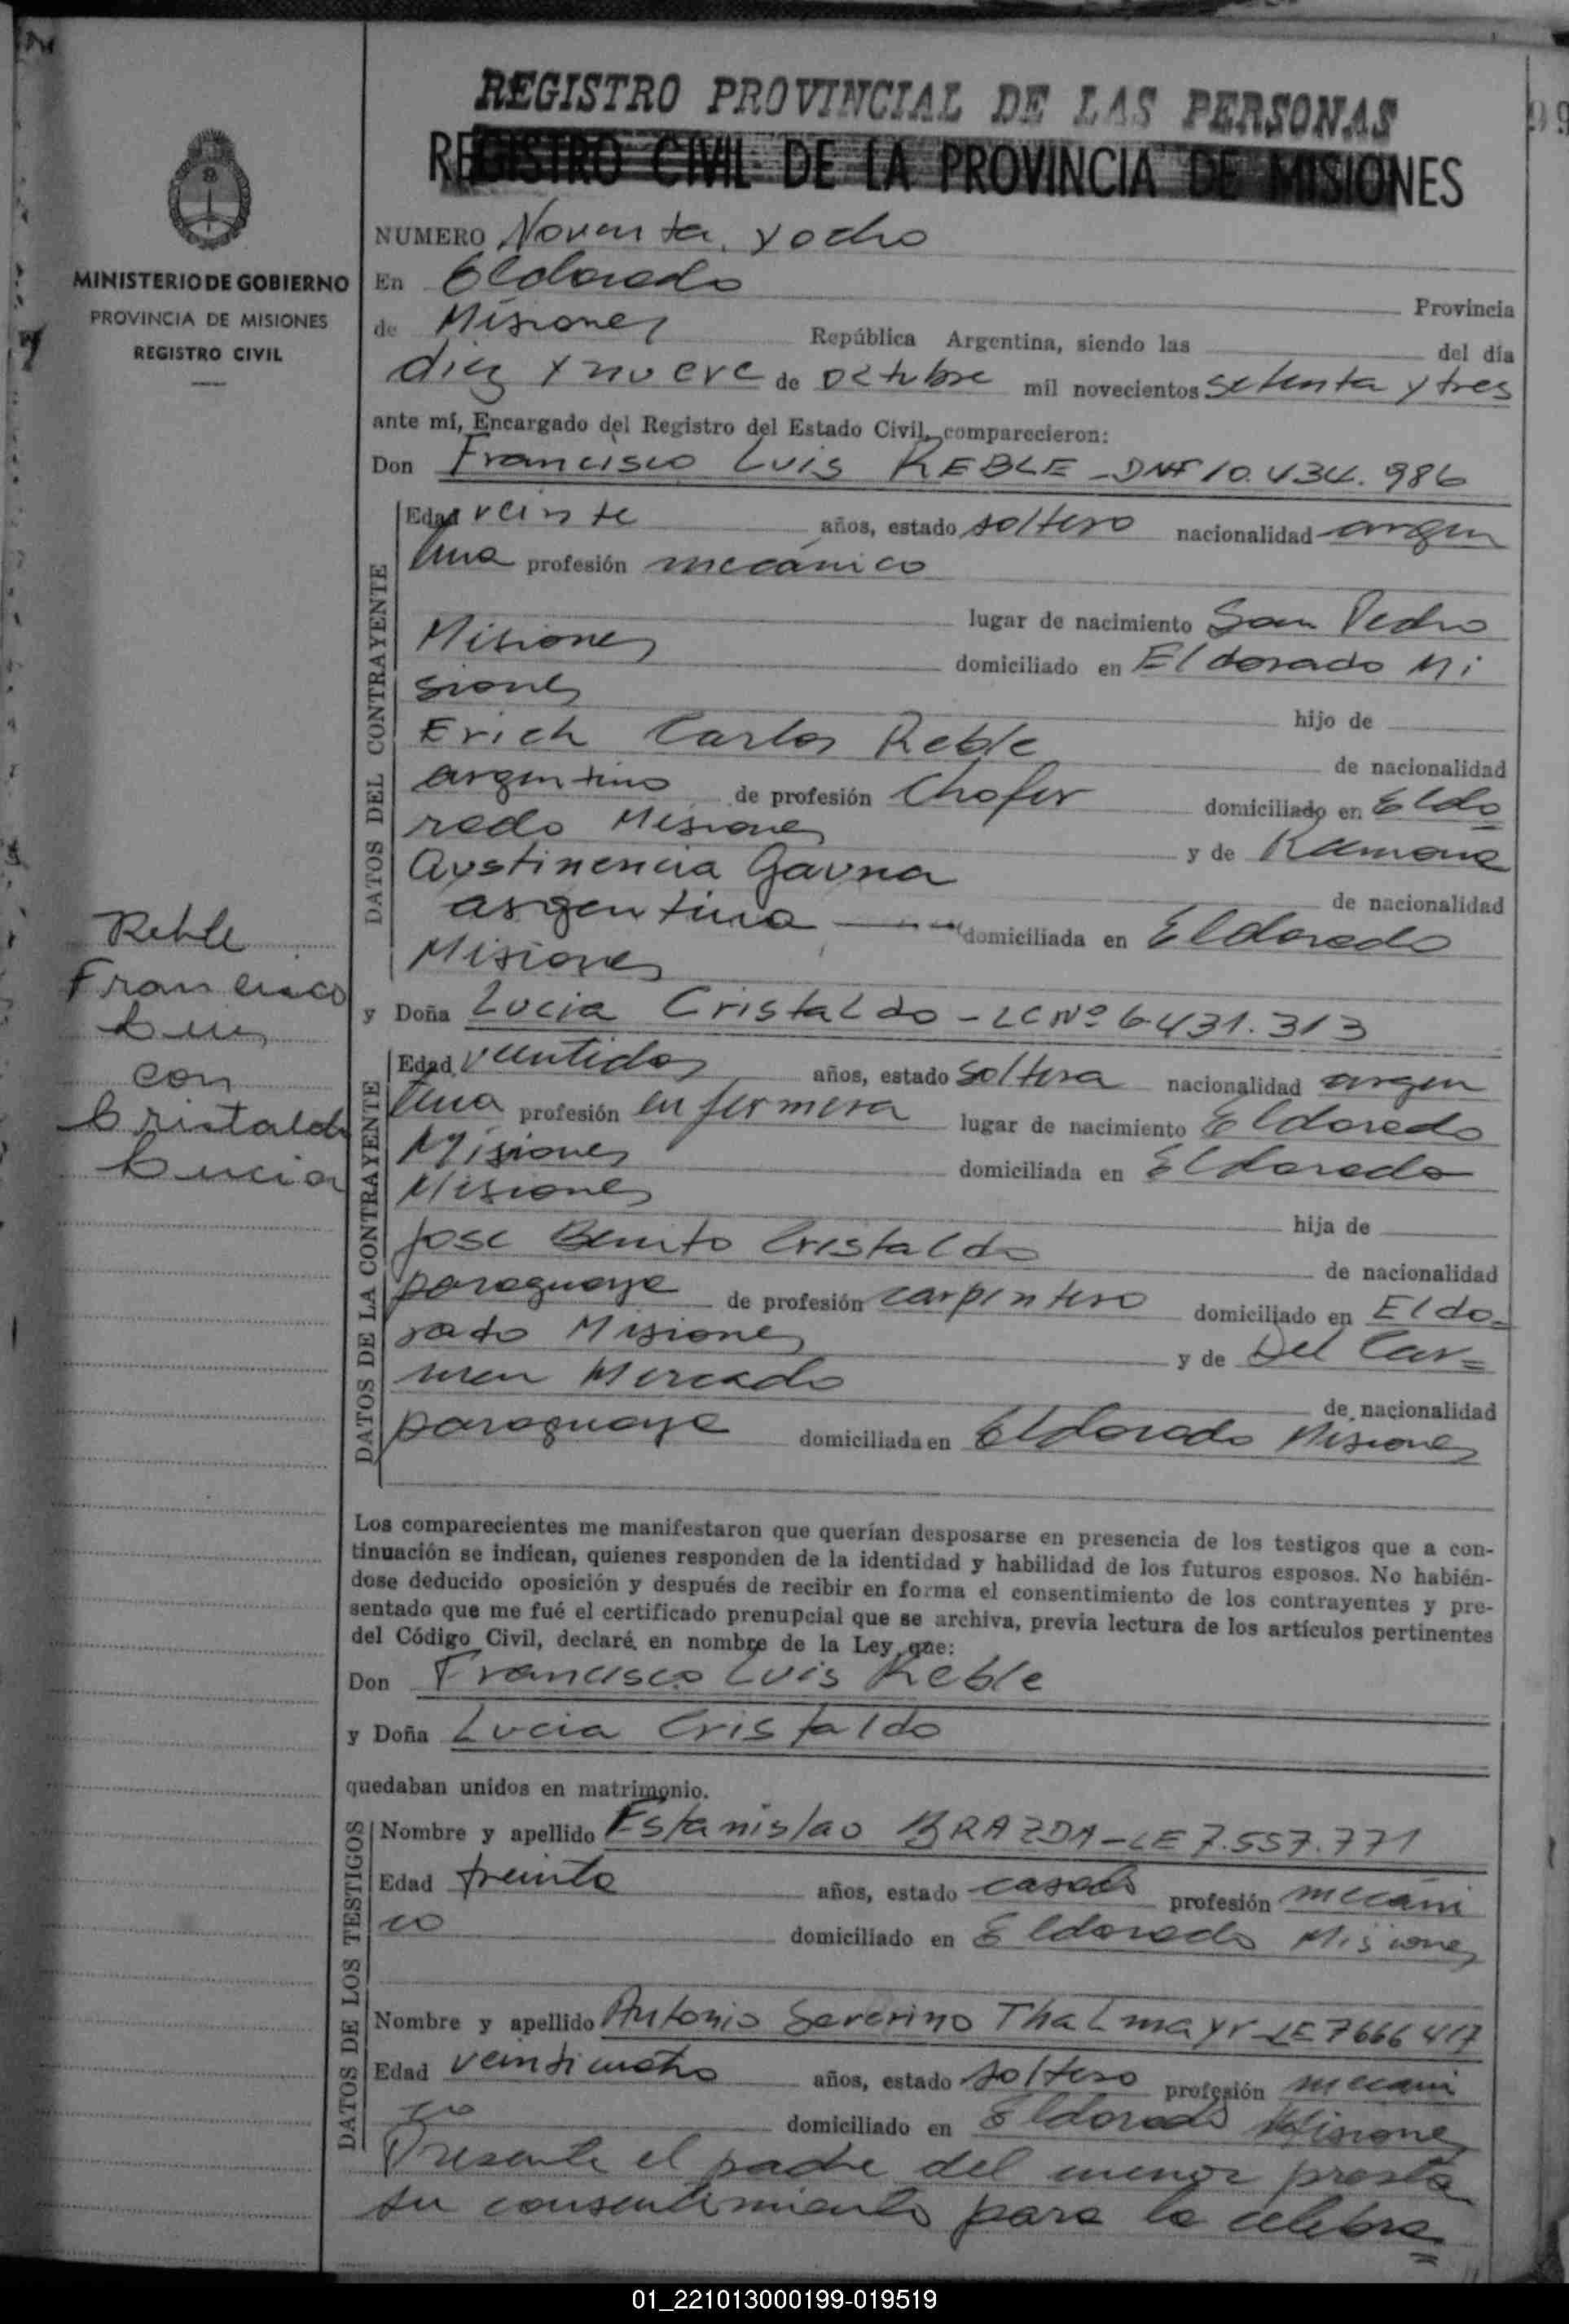 REGISTRO PROVINCIAL DE LAS PERSONAS
REGISTRO CIVIL DE LA PROVINCIA DE MISIONES
MINISTERIO DE GOBIERNO
PROVINCIA DE MISIONES
REGISTRO CIVIL
NUMERO Noventa y ocho
En Eldorado Provincia
de Misiones República Argentina, siendo las del día
diez y nueve de octubre mil novecientos setenta y tres
ante mí, Encargado del Registro del Estado Civil, comparecieron:
Don Francisco Luis REBLE - DNI 10.434.986
DATOS DEL CONTRAYENTE
Edad veinte años, estado soltero nacionalidad argen
tina profesión mecánico
lugar de nacimiento San Pedro
Misiones domiciliado en Eldorado Mi
siones hijo de
Erich Carlos Reble de nacionalidad
argentino de profesión Chofer domiciliado en Eldo
rado Misiones y de Ramona
Austinencia Gauna de nacionalidad
argentina domiciliada en Eldorado
Misiones
Reble
Francisco
Luis
con
Cristaldo
Lucia
y Doña Lucia Cristaldo - LC Nº 6431.313
DATOS DE LA CONTRAYENTE
Edad veintidos años, estado soltera nacionalidad argen
tina profesión enfermera lugar de nacimiento Eldorado
Misiones domiciliada en Eldorado
Misiones hija de
Jose Benito Cristaldo de nacionalidad
paraguaya de profesión carpintero domiciliado en Eldo-
rado Misiones y de Del Car=
men Mercado de nacionalidad
paraguaya domiciliada en Eldorado Misiones
Los comparecientes me manifestaron que querían desposarse en presencia de los testigos que a con-
tinuación se indican, quienes responden de la identidad y habilidad de los futuros esposos. No habién-
dose deducido oposición y después de recibir en forma el consentimiento de los contrayentes y pre-
sentado que me fué el certificado prenupcial que se archiva, previa lectura de los artículos pertinentes
del Código Civil, declaré en nombre de la Ley, que:
Don Francisco Luis Reble
y Doña Lucia Cristaldo
quedaban unidos en matrimonio.
DATOS DE LOS TESTIGOS
Nombre y apellido Estanislao BRAZDA - LE 7.557.771
Edad treinta años, estado casado profesión mecáni
co domiciliado en Eldorado Misiones
Nombre y apellido Antonio Severino Thalmayr - LE 7666417
Edad veinticuatro años, estado soltero profesión mecani
co domiciliado en Eldorado Misiones
Presente el padre del menor presta
su consentimiento para la celebra=
01_221013000199-019519